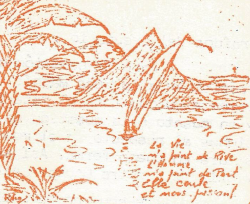 La Vie
n'a point de Rive
l'Homme
n'a point de Port
Elle coule
et nous passons!